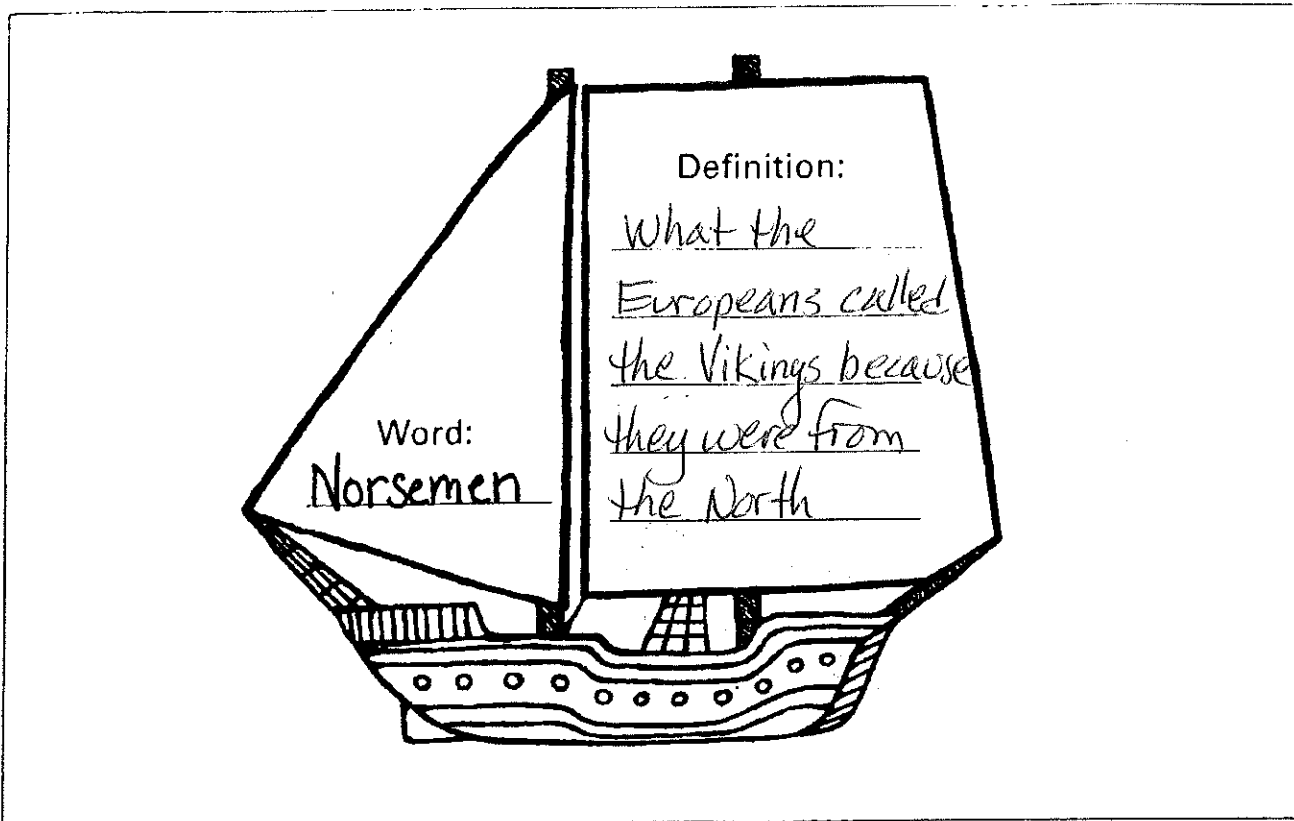 Word:
Norsemen
Definition:
What the
Europeans called
the Vikings because
they were from
the North